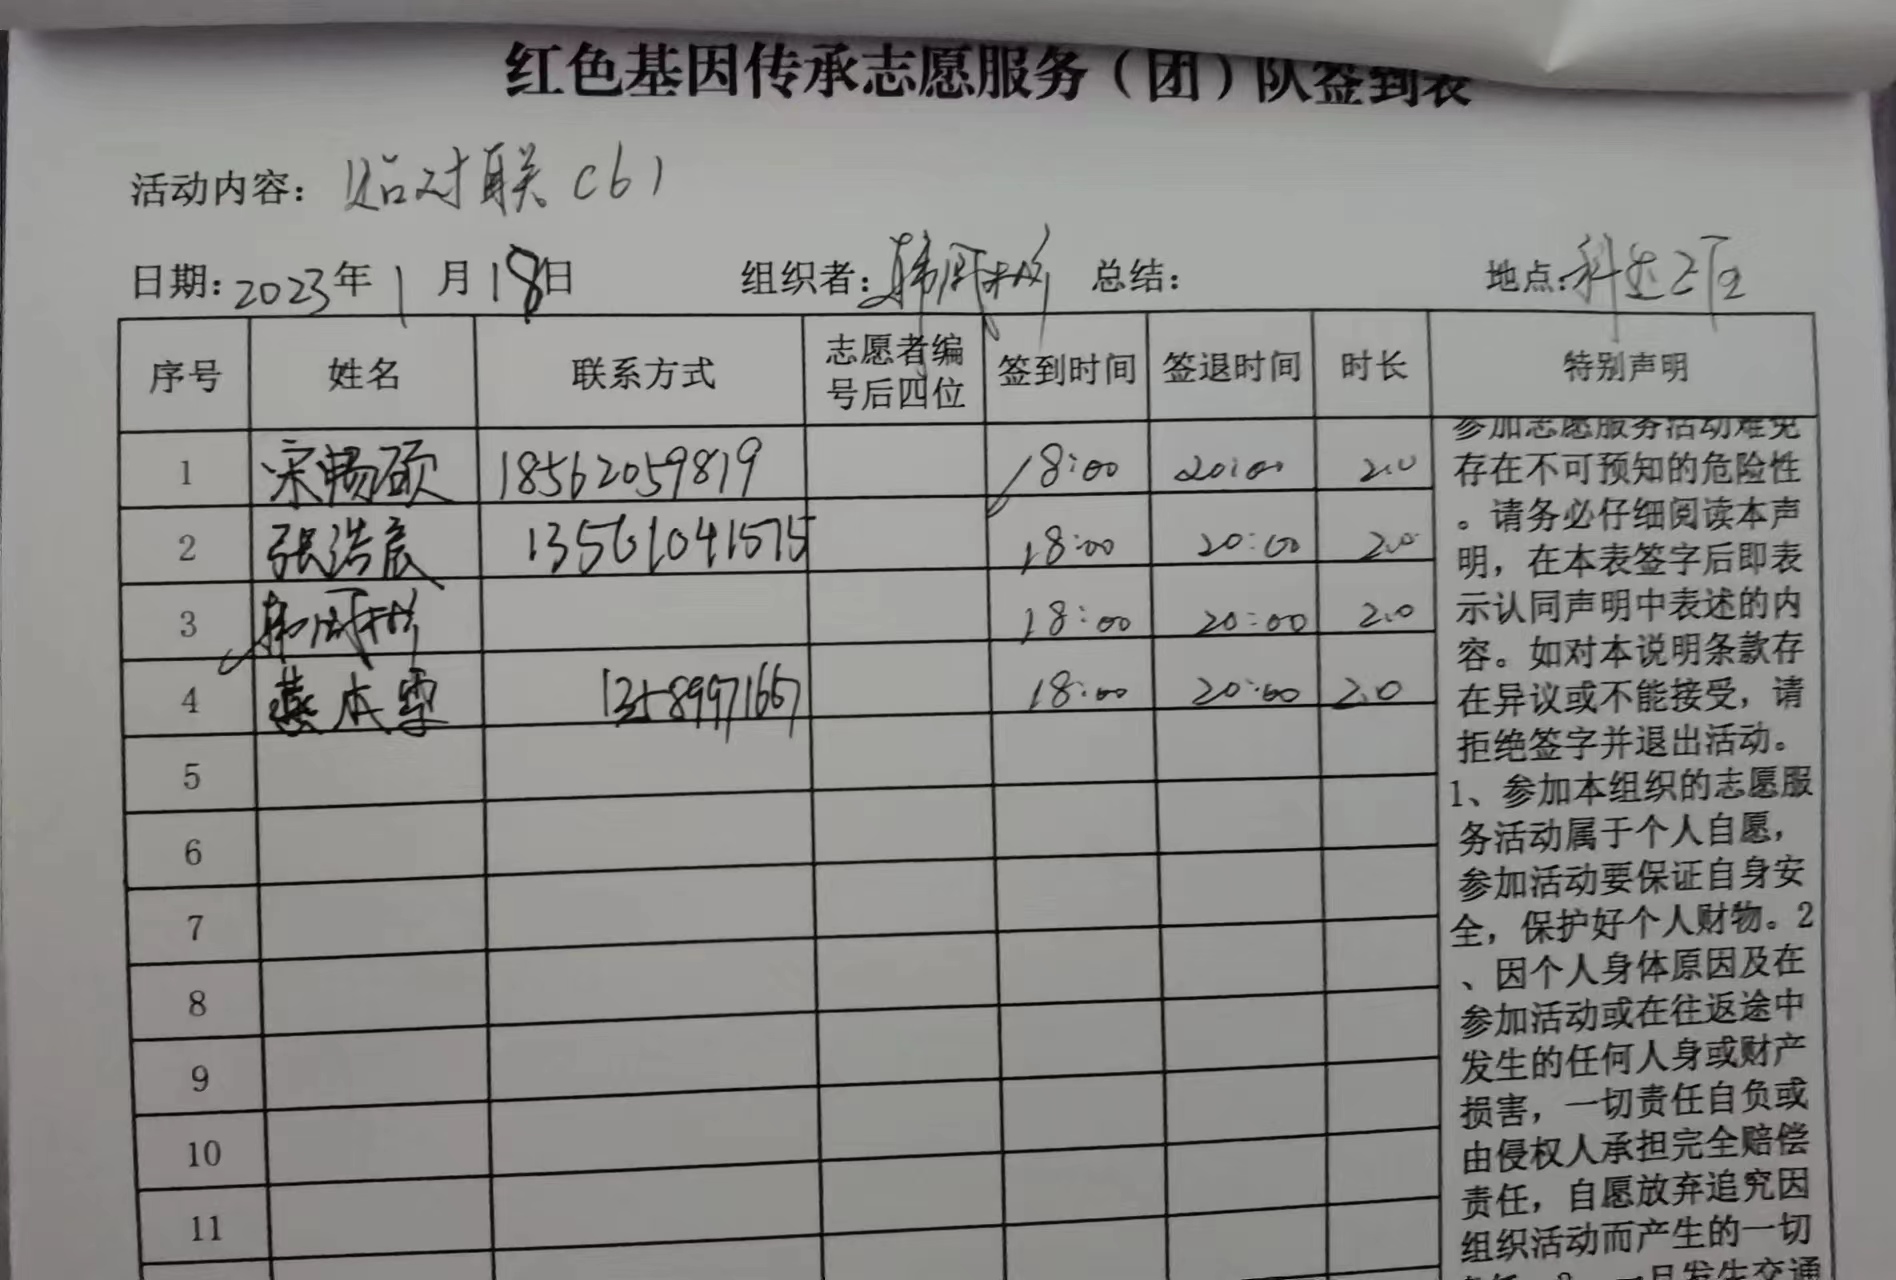 红色基因传承志愿服务（团）队签到表
活动内容：贴对联（6）
日期：2023年1月18日 组织者： 总结： 地点：科达2区
序号 姓名 联系方式 志愿者编号后四位 签到时间 签退时间 时长 特别声明
1 宋畅硕 18562059819 18:00 20:00 2.0
2 张浩宸 13561041575 18:00 20:00 2.0
3 18:00 20:00 2.0
4 本雪 13589971667 18:00 20:00 2.0
5
6
7
8
9
10
11
参加志愿服务活动难免
存在不可预知的危险性
。请务必仔细阅读本声
明，在本表签字后即表
示认同声明中表述的内
容。如对本说明条款存
在异议或不能接受，请
拒绝签字并退出活动。
1、参加本组织的志愿服
务活动属于个人自愿，
参加活动要保证自身安
全，保护好个人财物。2
、因个人身体原因及在
参加活动或在往返途中
发生的任何人身或财产
损害，一切责任自负或
由侵权人承担完全赔偿
责任，自愿放弃追究因
组织活动而产生的一切
旦发生交通